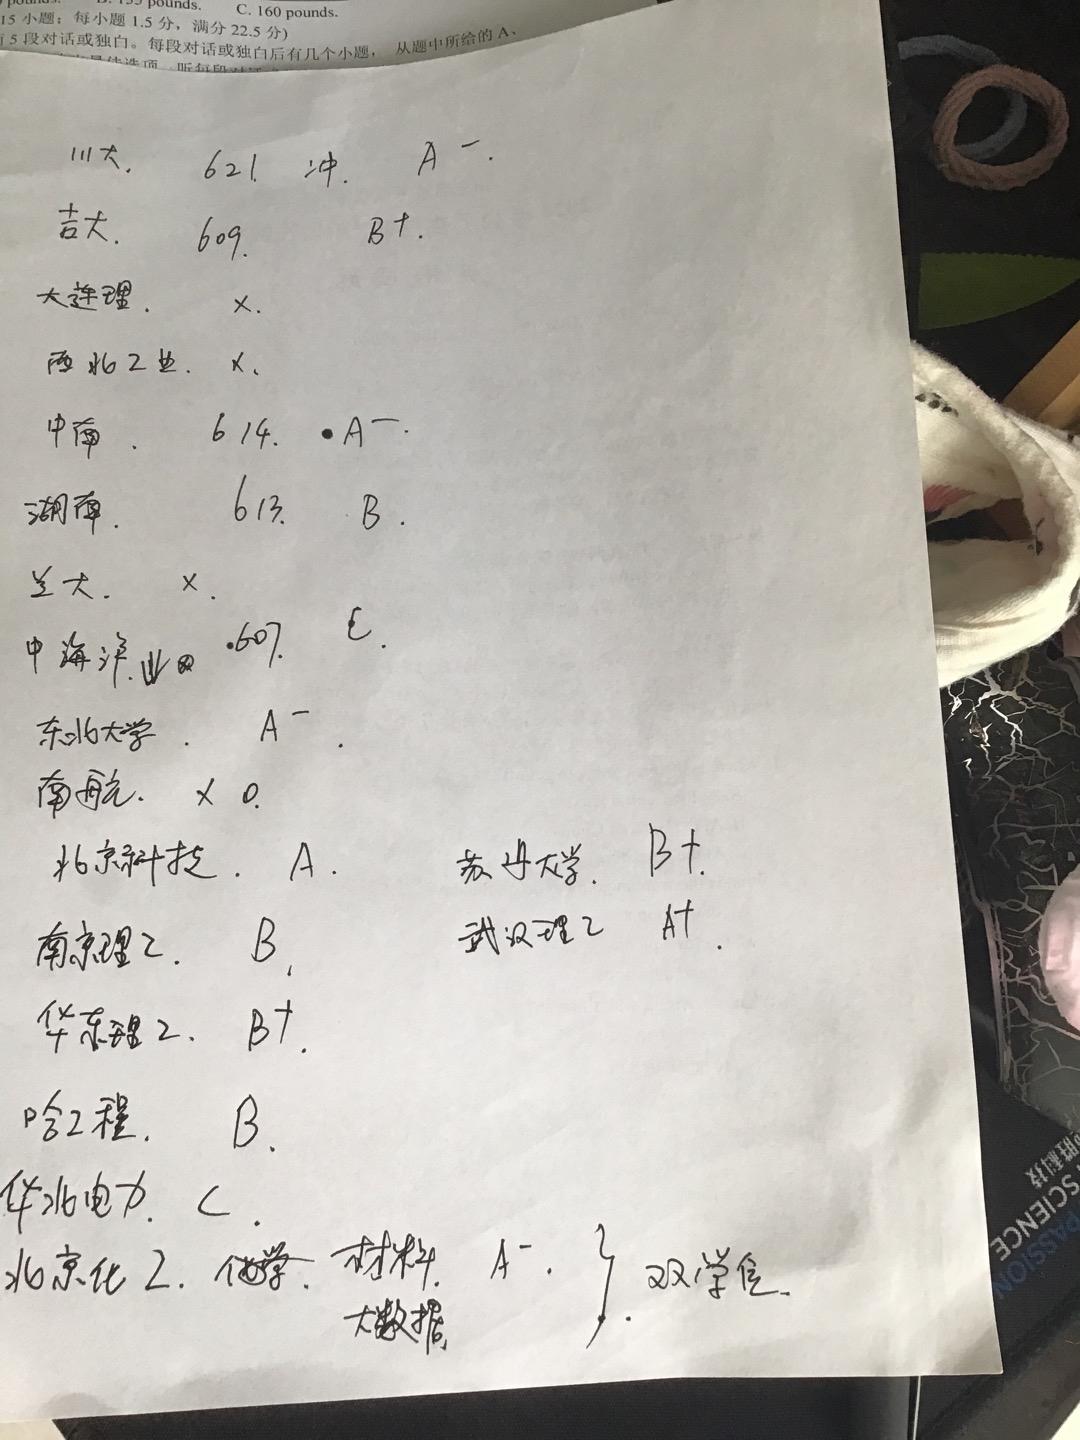 C. 160 pounds.
15 小题；每小题 1.5 分，满分 22.5 分)
5 段对话或独白。每段对话或独白后有几个小题， 从题中所给的 A、
川大. 621. 冲. A-.
吉大. 609. B+.
大连理. x.
西北工业. x.
中南. 614. •A-.
湖南. 613. B.
兰大. x.
中海洋. .607. C.
东北大学. A-.
南航. x 0.
北京科技. A. 苏州大学. B+.
南京理工. B. 武汉理工 A+.
华东理工. B+.
哈工程. B.
华北电力. C.
北京化工. 化学. 材料. A-. } 双学位.
大数据.
科技
SCIENCE
PASSION